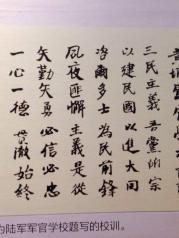 三民主義吾黨所宗
以建民國以進大同
咨爾多士為民前鋒
夙夜匪懈主義是從
矢勤矢勇必信必忠
一心一德貫徹始終
为陆军军官学校题写的校训。